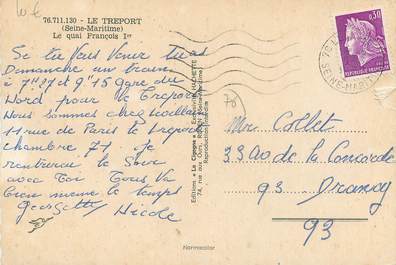 10 €
76.711.130 - LE TREPORT
(Seine-Maritime)
Le quai François Ier
Si tu veux venir
Dimanche un train
7h37 et 9h15 gare du
Nord pour le Treport
Nous sommes chez
11 rue de Paris le Treport
chambre 71 Je
rentrerai le Soir
avec Toi Tous Va
bien même le temps
Nicole
Editions « La Cigogne »
HACHETTE
Reproduction interdite
0,30
REPUBLIQUE FRANÇAISE
SEINE-MARITIME
76
Mr Collet
33 Av de la Concorde
93 Drancy
93